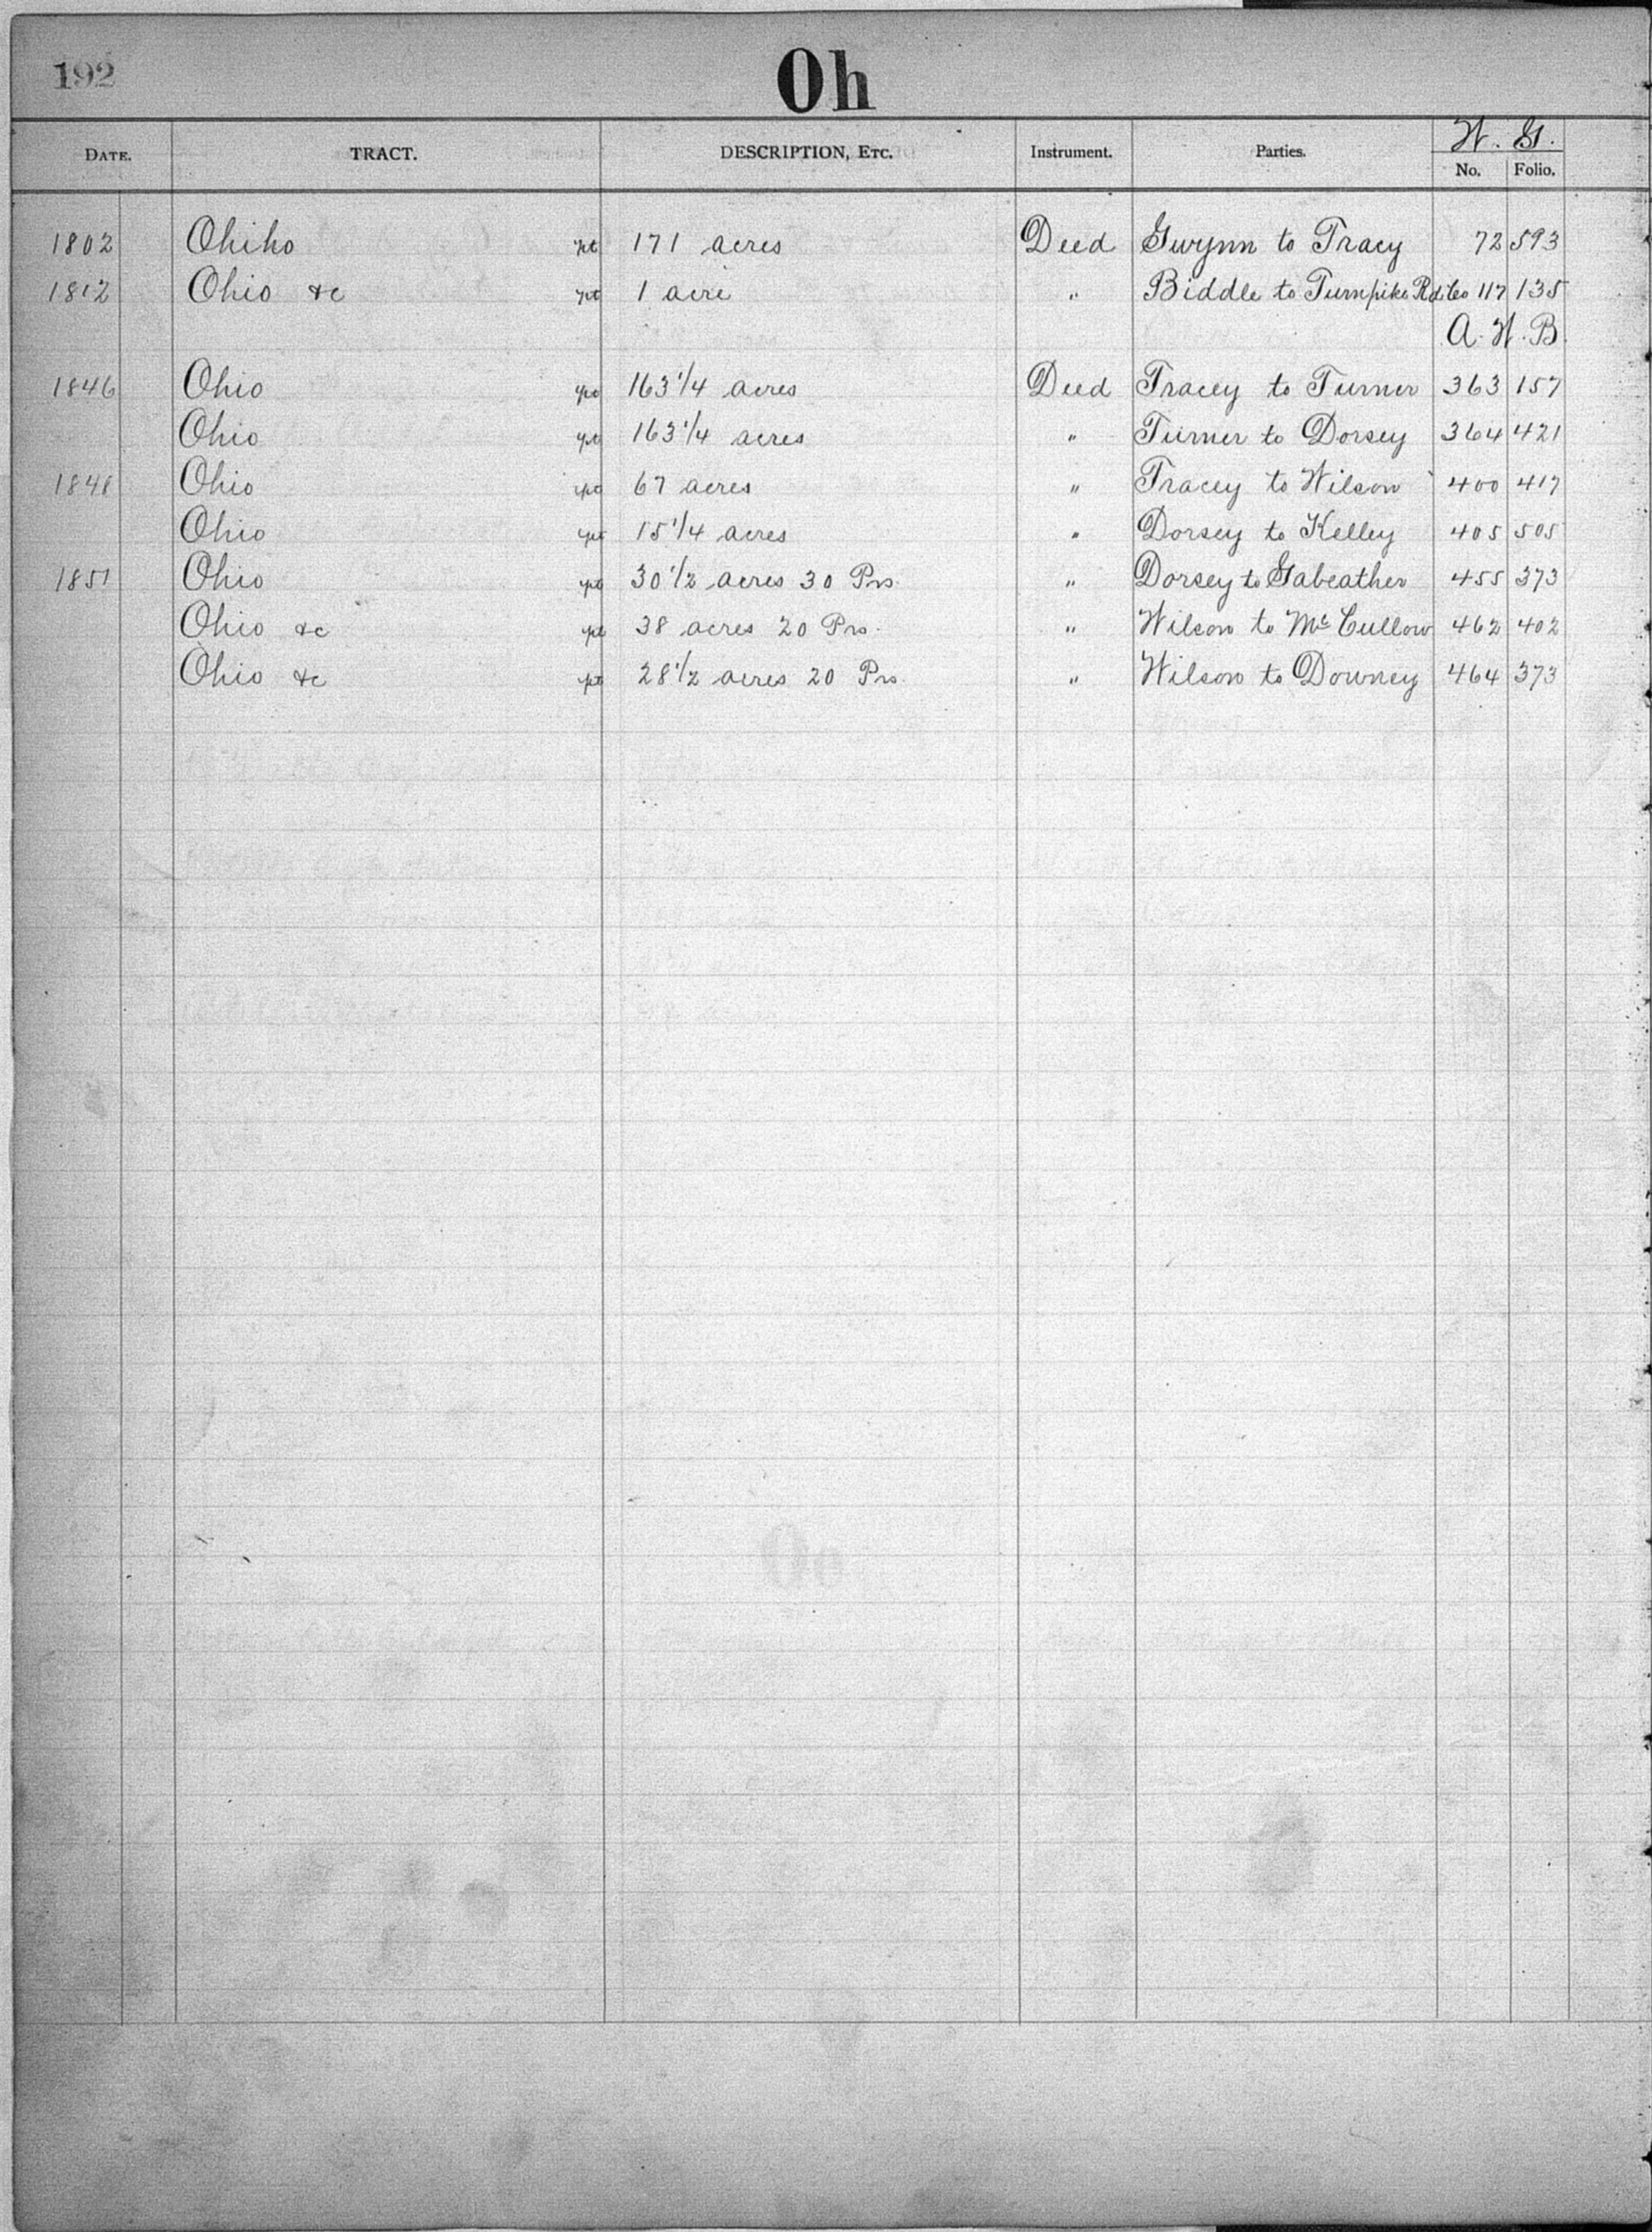 192
Oh
W. G.
DATE. TRACT. DESCRIPTION, ETC. Instrument. Parties. No. Folio.
1802 Ohiho pt 171 acres Deed Gwynn to Tracy 72 593
1812 Ohio &c pt 1 acre " Biddle to Turnpike Rd. Co 117 135
A. W. B.
1846 Ohio pt 163 1/4 acres Deed Tracey to Turner 363 157
Ohio pt 163 1/4 acres " Turner to Dorsey 364 421
1848 Ohio pt 67 acres " Tracey to Wilson 400 417
Ohio pt 15 1/4 acres " Dorsey to Kelley 405 505
1851 Ohio pt 30 1/2 acres 30 Prs. " Dorsey to Gabeather 455 373
Ohio &c pt 38 acres 20 Prs. " Wilson to Mc Cullow 462 402
Ohio &c pt 28 1/2 acres 20 Prs. " Wilson to Downey 464 373